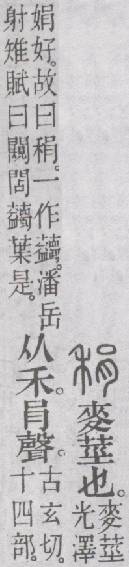 䅌麥莖也。麥莖
光澤
娟好。故曰䅌。一作。潘岳
射雉賦曰闚葉是。
从禾肙聲。古玄切。
十四部。